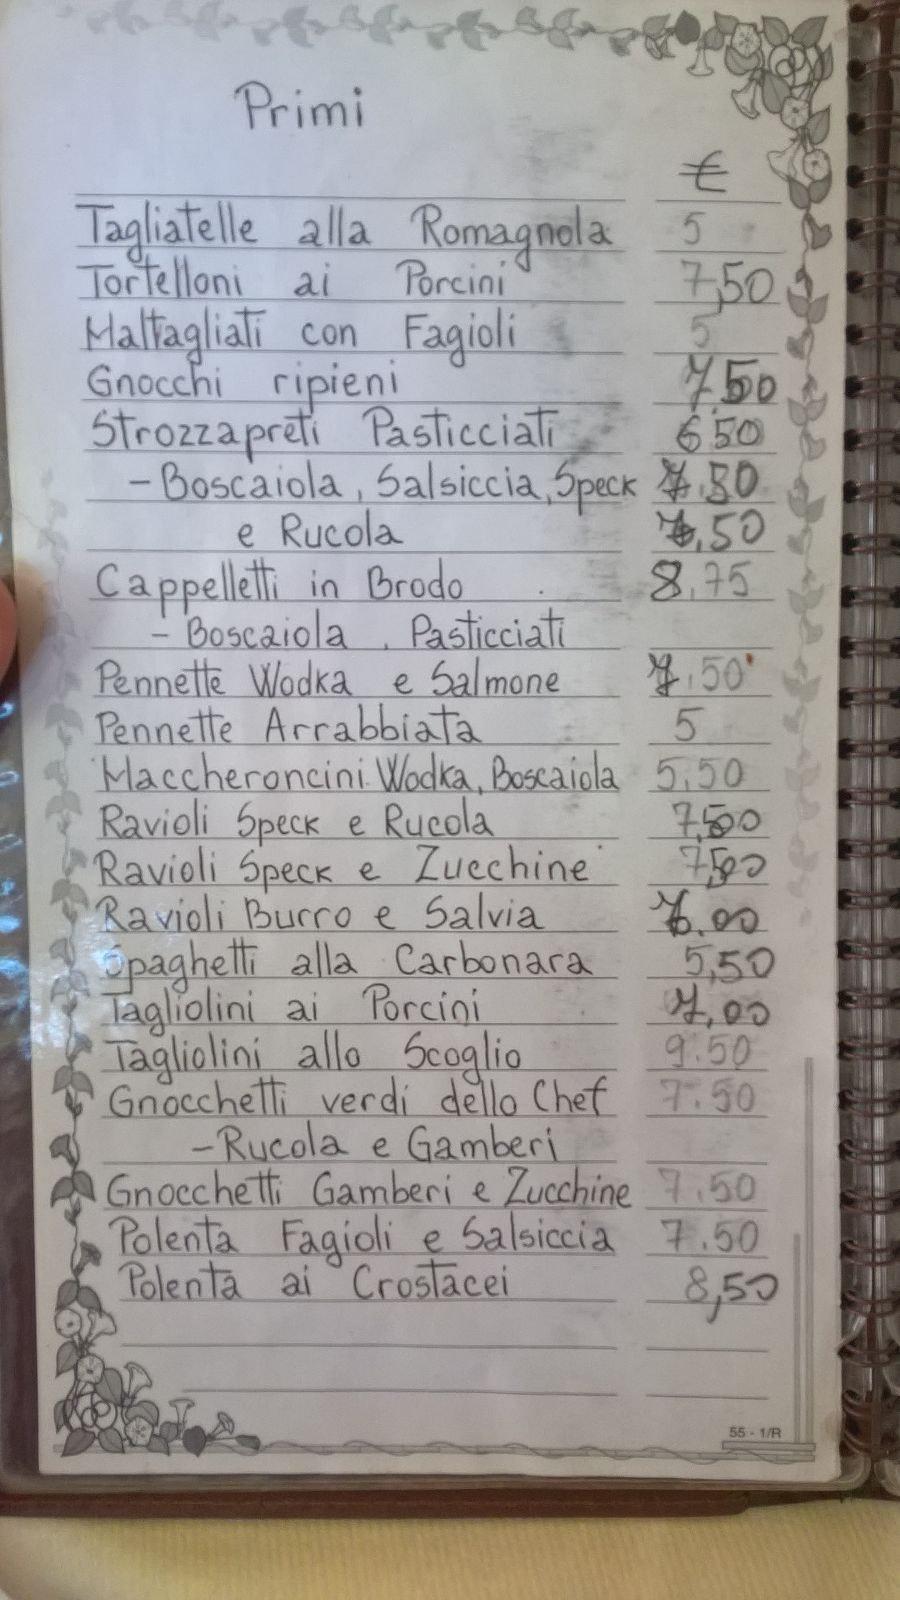 Primi
€
Tagliatelle alla Romagnola 5
Tortelloni ai Porcini 7,50
Maltagliati con Fagioli 5
Gnocchi ripieni 7,50
Strozzapreti Pasticciati 6.50
- Boscaiola, Salsiccia, Speck
e Rucola
Cappelletti in Brodo 8.75
- Boscaiola, Pasticciati
Pennette Wodka e Salmone 7.50
Pennette Arrabbiata 5
Maccheroncini Wodka, Boscaiola 5,50
Ravioli Speck e Rucola
Ravioli Speck e Zucchine
Ravioli Burro e Salvia
Spaghetti alla Carbonara 5,50
Tagliolini ai Porcini 7,00
Tagliolini allo Scoglio 9.50
Gnocchetti verdi dello Chef 7.50
- Rucola e Gamberi
Gnocchetti Gamberi e Zucchine 7.50
Polenta Fagioli e Salsiccia 7.50
Polenta ai Crostacei 8,50
55 - 1/R